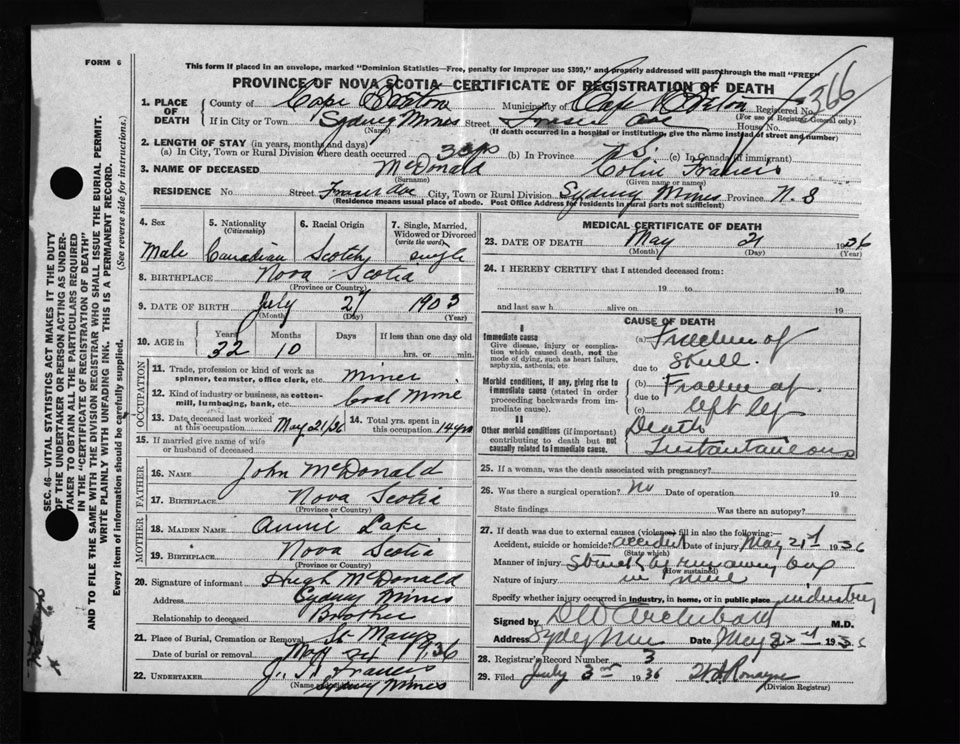 FORM 6
This form if placed in an envelope, marked "Dominion Statistics—Free, penalty for improper use $300," and properly addressed will pass through the mail "FREE"
PROVINCE OF NOVA SCOTIA—CERTIFICATE OF REGISTRATION OF DEATH
366
1. PLACE OF DEATH County of Cape Breton Municipality of Cape Breton Registered No.
(For use of Registrar General only)
If in City or Town Sydney Mines Street Fraser Ave House No.
(Name) (If death occurred in a hospital or institution, give the name instead of street and number)
2. LENGTH OF STAY (in years, months and days)
(a) In City, Town or Rural Division where death occurred (b) In Province N.S. (c) In Canada (if immigrant)
3. NAME OF DECEASED McDonald Colin Francis
(Surname) (Given name or names)
RESIDENCE No. Street Fraser Ave City, Town or Rural Division Sydney Mines Province N.S
(Residence means usual place of abode. Post Office Address for residents in rural parts not sufficient)
4. Sex 5. Nationality (Citizenship) 6. Racial Origin 7. Single, Married, Widowed or Divorced (write the word)
Male Canadian Scotch single
8. BIRTHPLACE Nova Scotia
(Province or Country)
9. DATE OF BIRTH July 27 1903
(Month) (Day) (Year)
10. AGE in Years Months Days If less than one day old
32 10 hrs. or min.
OCCUPATION
11. Trade, profession or kind of work as spinner, teamster, office clerk, etc. Miner
12. Kind of industry or business, as cotton-mill, lumbering, bank, etc. Coal Mine
13. Date deceased last worked at this occupation May 21/36 14. Total yrs. spent in this occupation 14 yrs
15. If married give name of wife or husband of deceased
FATHER
16. NAME John McDonald
17. BIRTHPLACE Nova Scotia
(Province or Country)
MOTHER
18. MAIDEN NAME Annie Lake
19. BIRTHPLACE Nova Scotia
(Province or Country)
20. Signature of informant Hugh McDonald
Address Sydney Mines
Relationship to deceased Brother
21. Place of Burial, Cremation or Removal St Marys
Date of burial or removal May 1936
22. UNDERTAKER J. H. Francis
Sydney Mines
MEDICAL CERTIFICATE OF DEATH
23. DATE OF DEATH May 21 1936
(Month) (Day) (Year)
24. I HEREBY CERTIFY that I attended deceased from:
19 to 19
and last saw h alive on 19
CAUSE OF DEATH
I
Immediate cause
Give disease, injury or complication which caused death, not the mode of dying, such as heart failure, asphyxia, asthenia, etc.
(a) Fracture of
Skull.
due to
Morbid conditions, if any, giving rise to immediate cause (stated in order proceeding backwards from immediate cause).
(b) Fracture of
due to
(c) left leg
II
Other morbid conditions (if important) contributing to death but not causally related to immediate cause.
Death
Instantaneous
25. If a woman, was the death associated with pregnancy?
26. Was there a surgical operation? No Date of operation 19
State findings Was there an autopsy?
27. If death was due to external causes (violence) fill in also the following:—
Accident, suicide or homicide? accident Date of injury May 21st 1936
(State which)
Manner of injury Struck by runaway box
(How sustained)
Nature of injury in mine
Specify whether injury occurred in industry, in home, or in public place industry
Signed by DW Archibald M.D.
Address Sydney Mines Date May 22nd 1936
28. Registrar's Record Number 3
29. Filed July 3rd 1936
(Division Registrar)
SEC. 46—VITAL STATISTICS ACT MAKES IT THE DUTY
OF THE UNDERTAKER OR PERSON ACTING AS UNDER-
TAKER TO OBTAIN ALL THE PARTICULARS REQUIRED
IN THE "CERTIFICATE OF REGISTRATION OF DEATH"
AND TO FILE THE SAME WITH THE DIVISION REGISTRAR WHO SHALL ISSUE THE BURIAL PERMIT.
WRITE PLAINLY WITH UNFADING INK. THIS IS A PERMANENT RECORD.
Every item of information should be carefully supplied.
(See reverse side for instructions.)